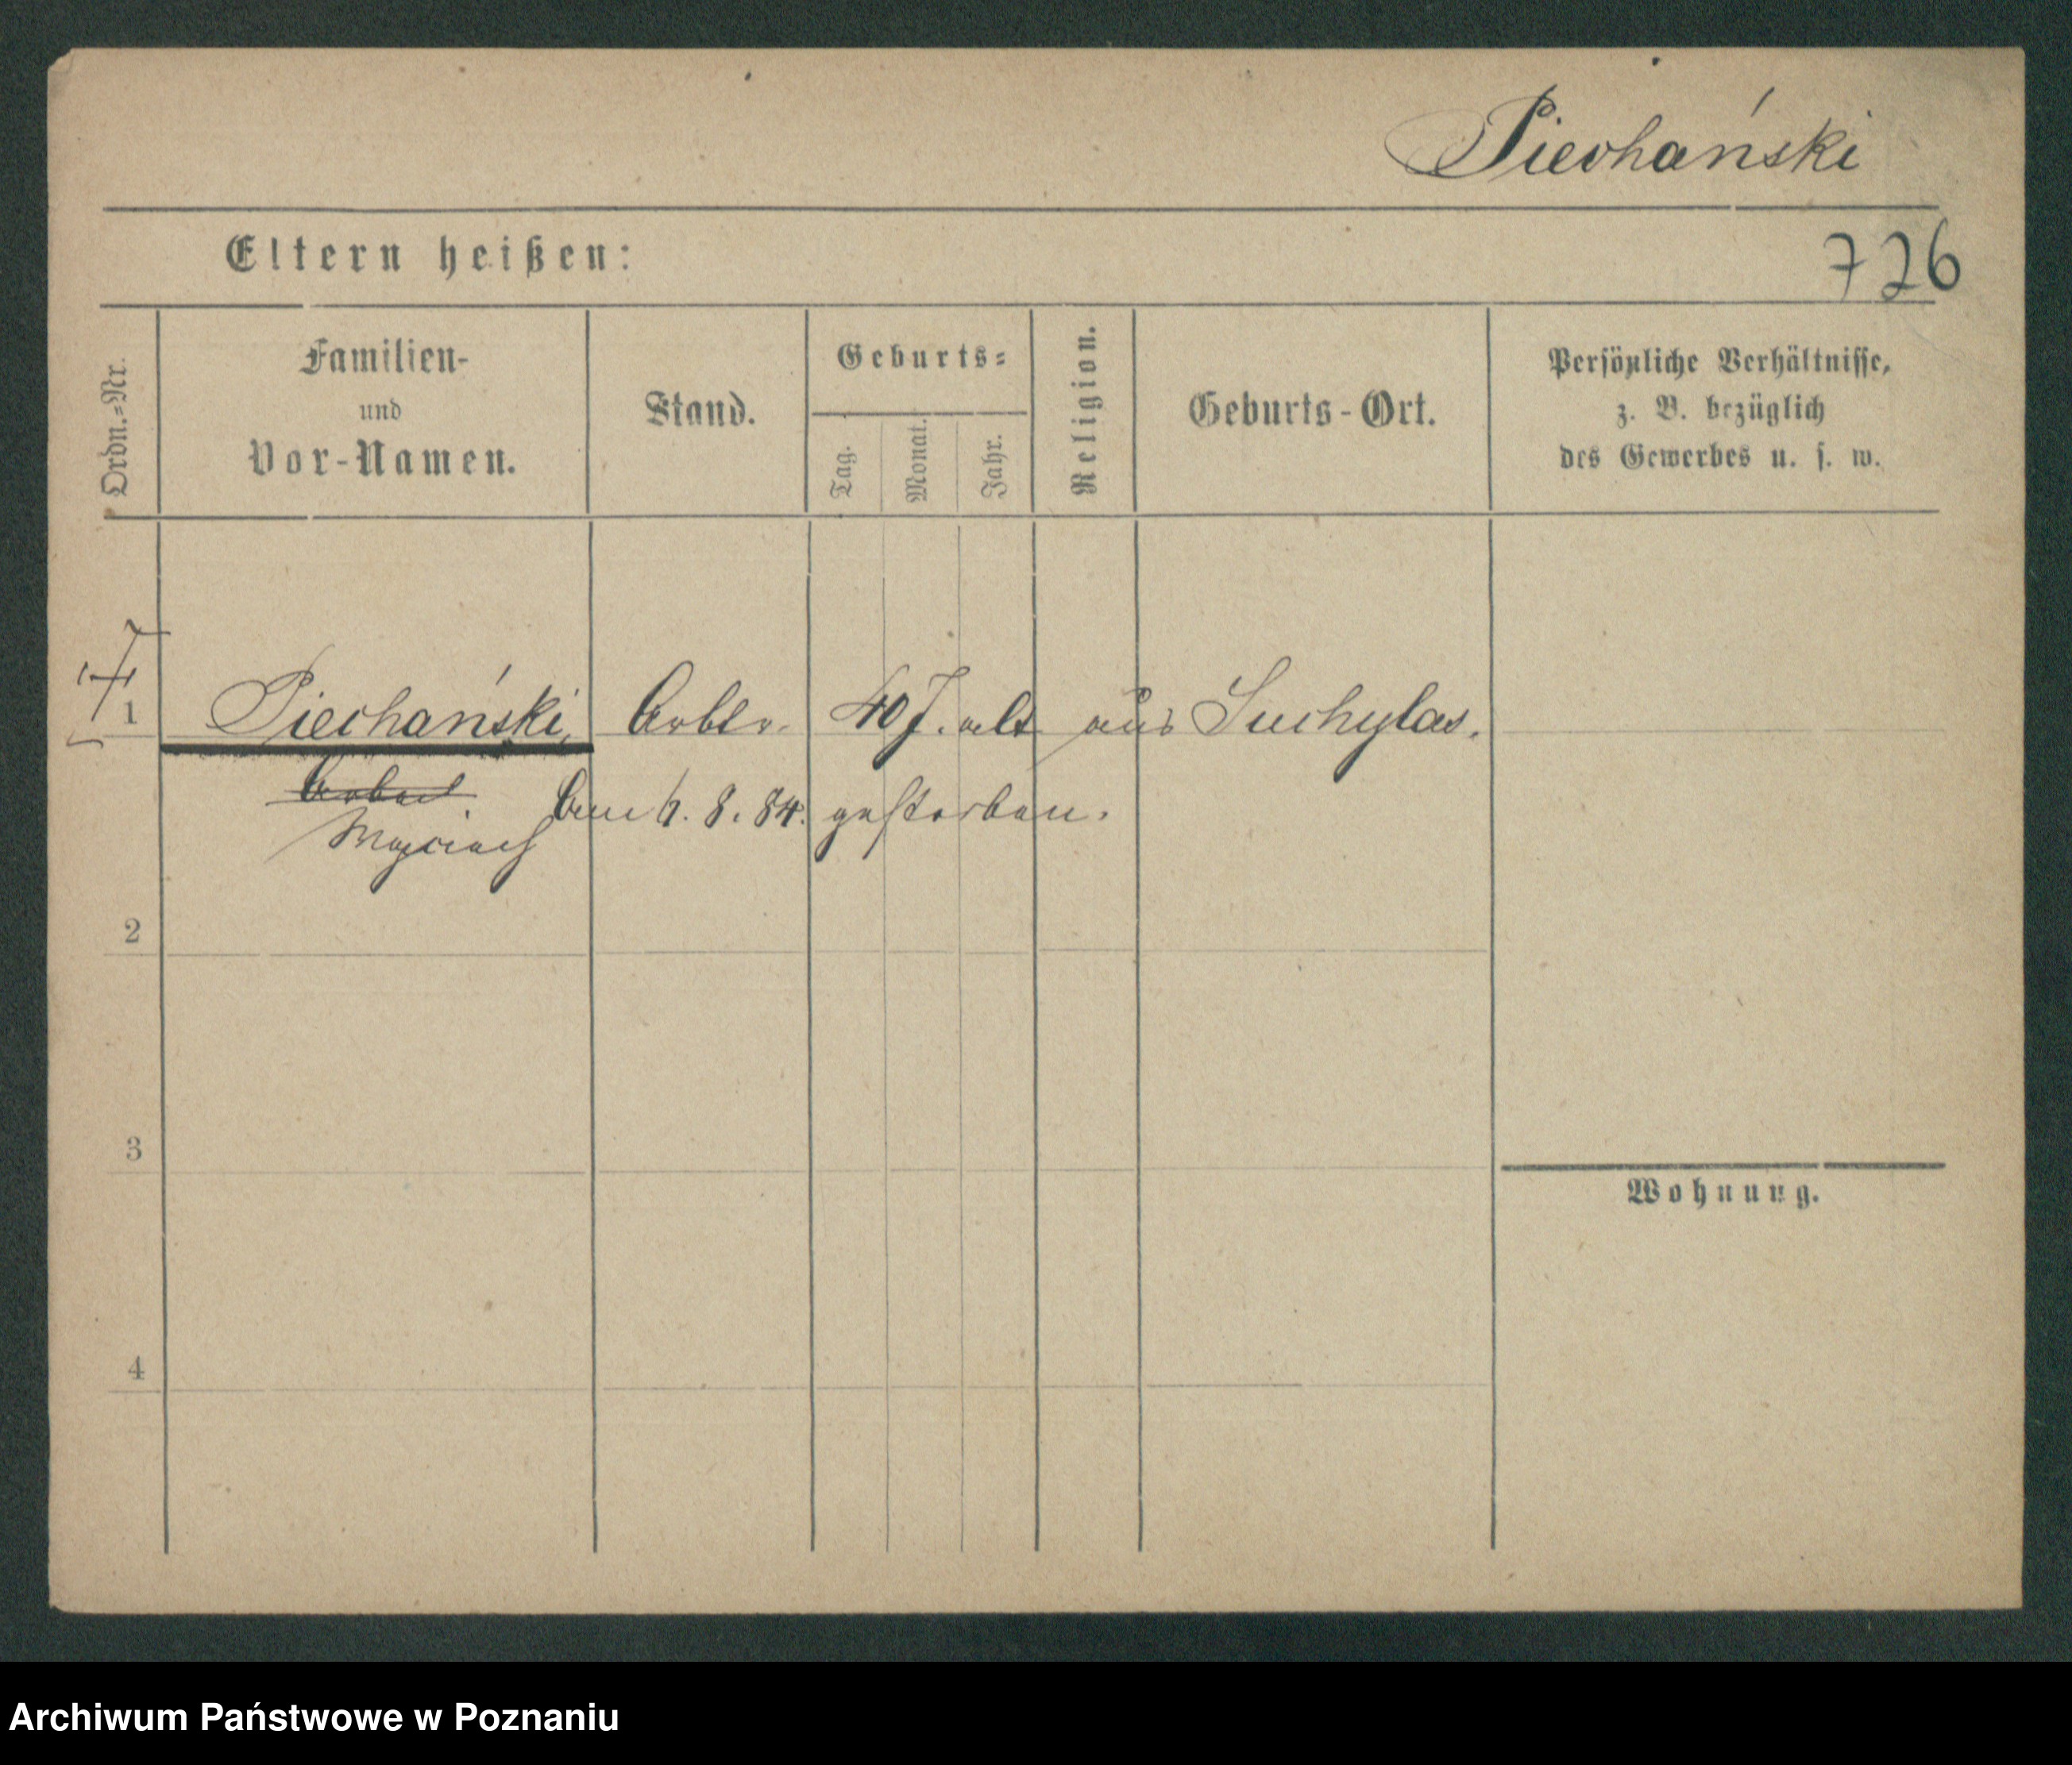 Piechański
Eltern heißen:
726
Ordn.=Nr.
Familien-
und
Vor-Namen.
Stand.
Geburts=
Tag.
Monat.
Jahr.
Religion.
Geburts-Ort.
Persönliche Verhältnisse,
z. B. bezüglich
des Gewerbes u. s. w.
1 Piechański, Arbtr. 40 J. alt aus Suchylas.
Am 6. 8. 84. gestorben.
2
3
Wohnung.
4
Archiwum Państwowe w Poznaniu